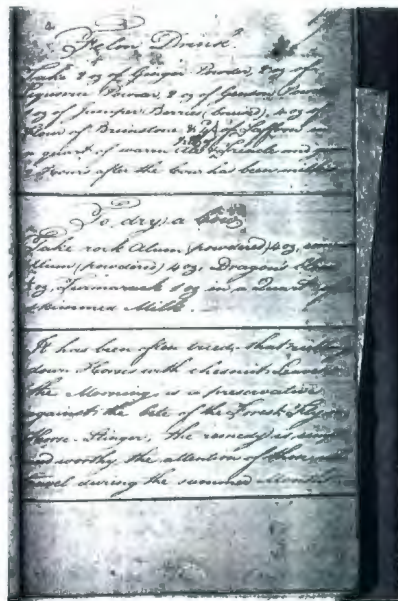 Felon Drink.
Take 2 oz of Ginger Powder, 2 oz of
Liquorice Powder, 2 oz of Gentian
oz of Juniper Berries (bruised), 4 oz of
Flour of Brimstone & of Saffron in
a quart of warm Ale & Treacle and
2 Hours after the Cow has been milked
To dry a Cow
Take rock Alum (powdered) 4 oz,
Alum (powdered) 4 oz, Dragon's
oz, Turmarick 1 oz in a Quart of
skimmed Milk.
It has been often tried, that rubbing
down Horses with chesnut Leaves
the Morning, is a preservative
against the bite of the Forest Fly
Horse-Stinger, the remedy is
and worthy the attention of those
travel during the summer Months